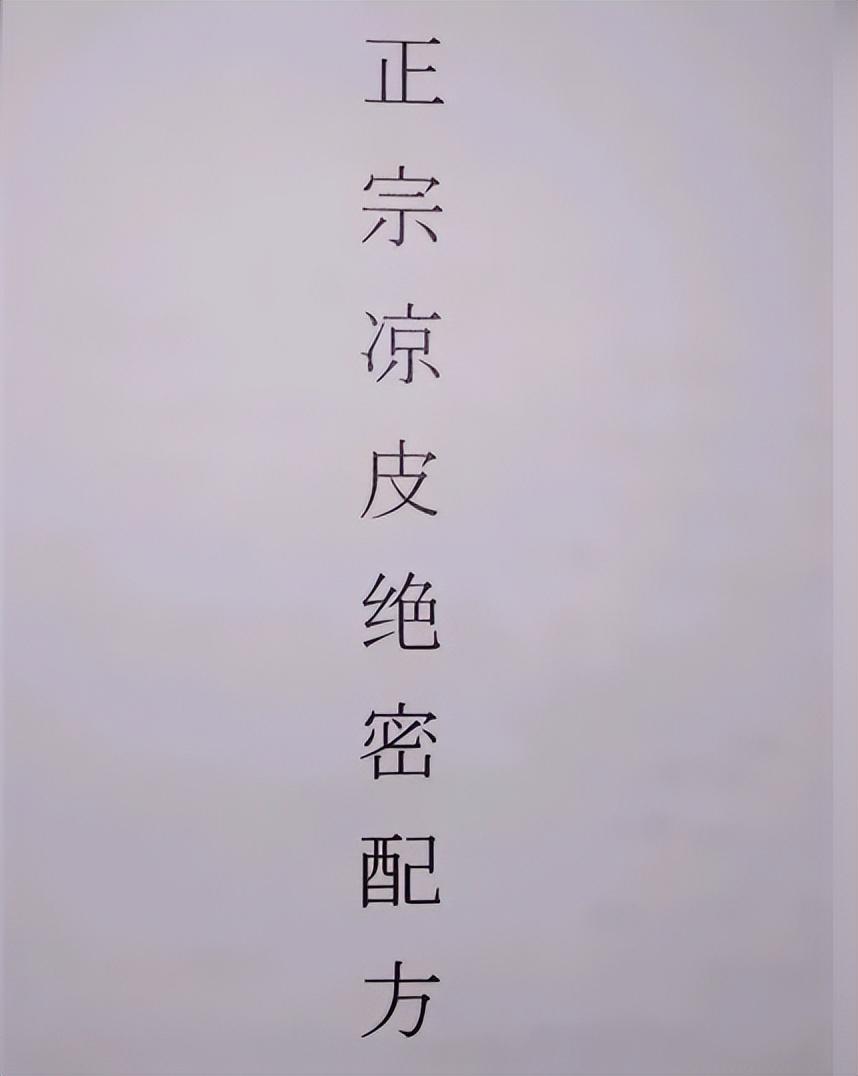 正宗凉皮绝密配方